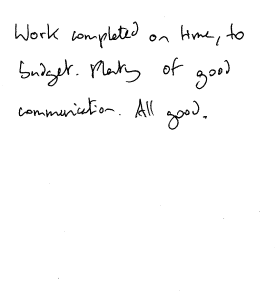 Work completed on time, to
budget. Plenty of good
communication. All good.